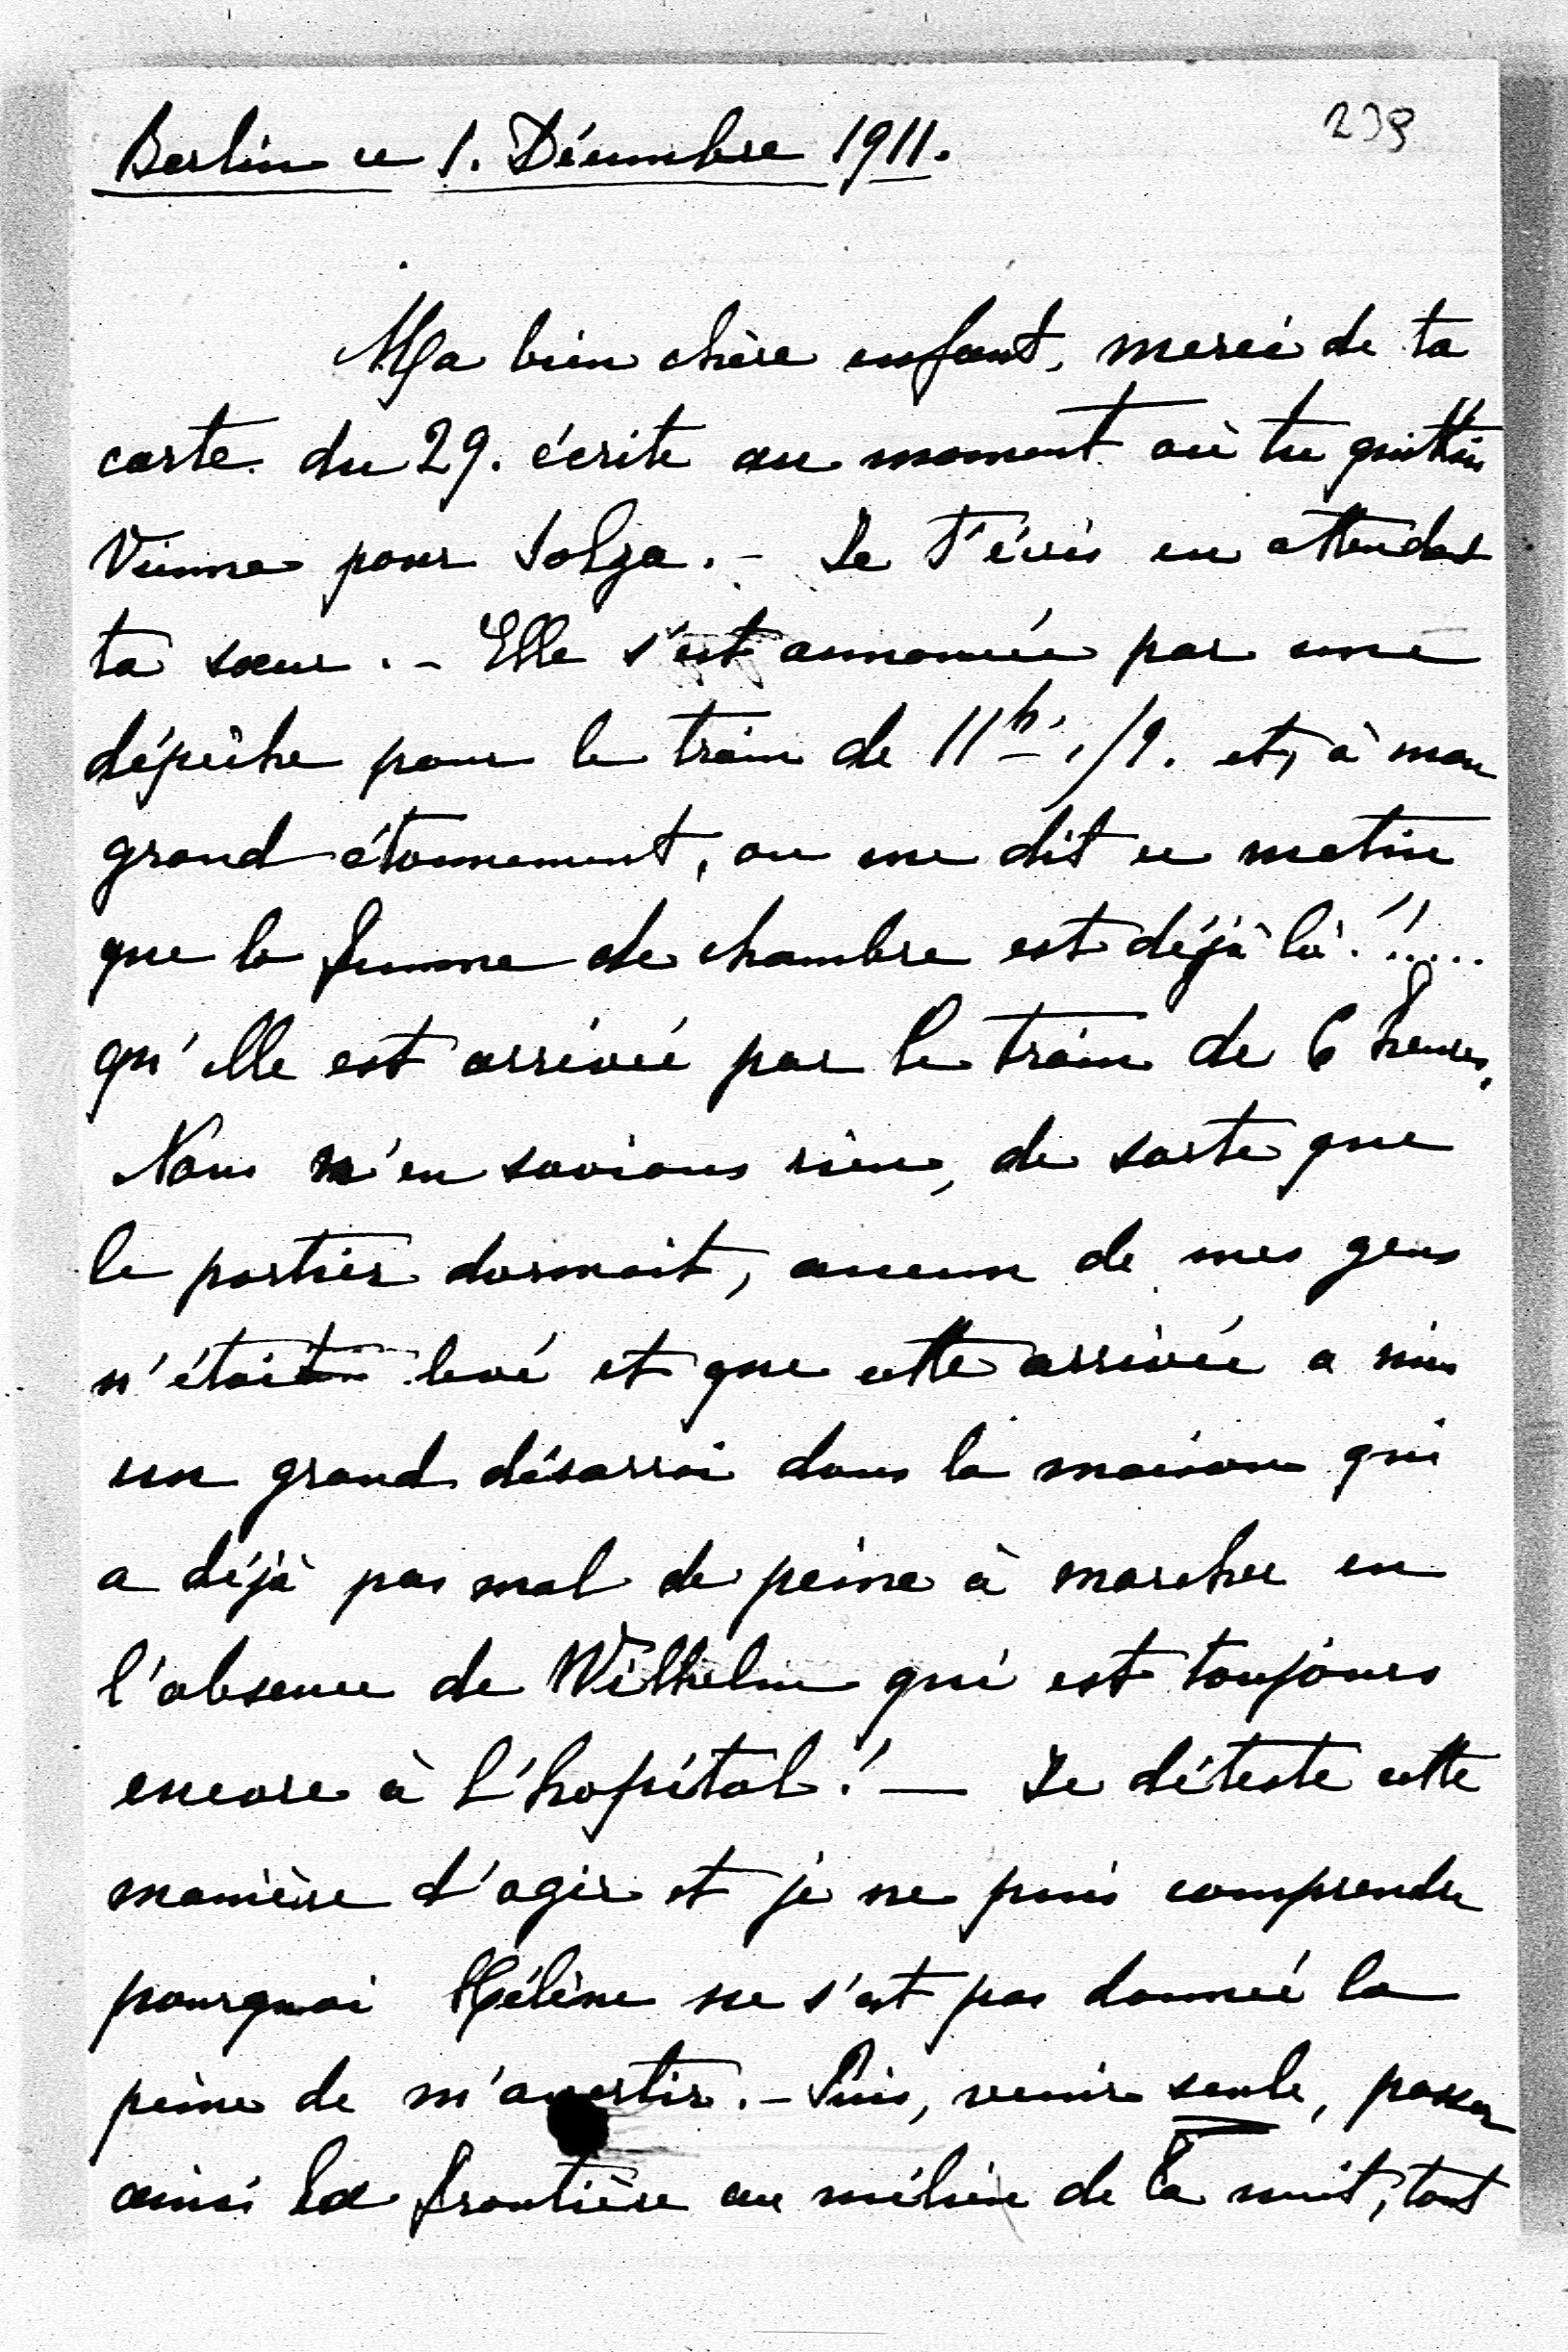 239
Berlin ce 1. Décembre 1911.
Ma bien chère enfant, merci de ta
carte du 29. écrite au moment où tu quittais
Vienne pour Jolga. - Je t'écris en attendant
ta sœur. - Elle s'est annoncée par une
dépêche pour le train de 11h. 1/2. et, à mon
grand étonnement, on me dit ce matin
que la femme de chambre est déjà là!!....
qu'elle est arrivée par le train de 6 heures.
Nous n'en savions rien, de sorte que
le portier dormait, aucun de mes gens
n'était levé et que cette arrivée a mis
un grand désarroi dans la maison qui
a déjà pas mal de peine à marcher en
l'absence de Wilhelm qui est toujours
encore à l'hopital! — Je déteste cette
manière d'agir et je ne puis comprendre
pourquoi Hélène ne s'est pas donnée la
peine de m'avertir. - Puis, venir seule, passer
ainsi la frontière au milieu de la nuit, tout